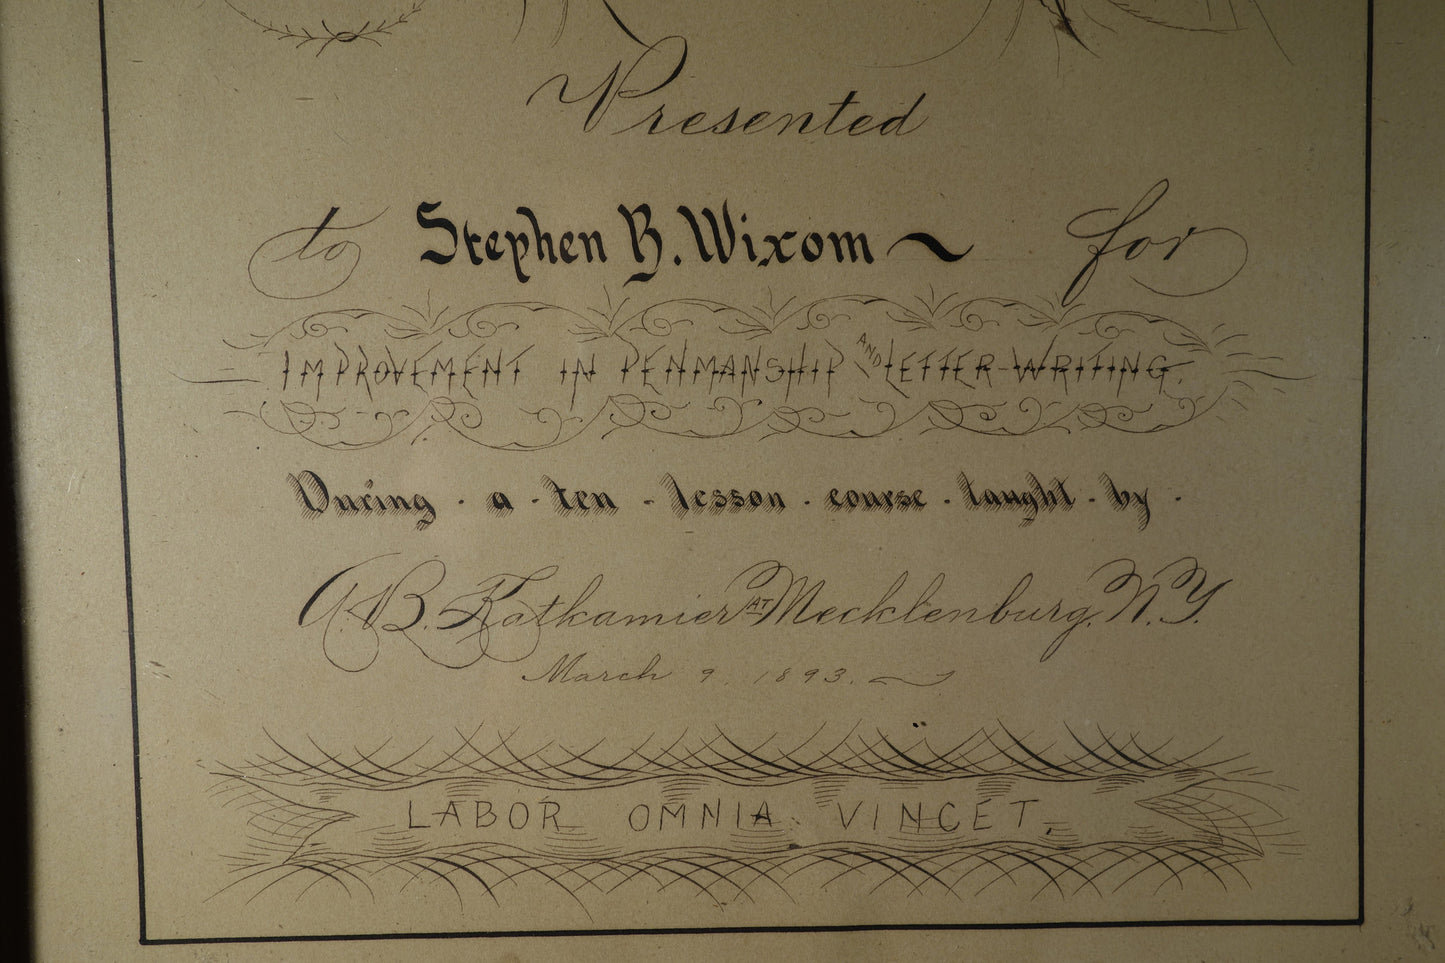 Presented
to Stephen B. Wixom ~ for
IMPROVEMENT IN PENMANSHIP AND LETTER-WRITING.
During · a · ten · lesson · course · taught · by ·
A. B. Katkamier AT Mecklenburg, N. Y.
March 9, 1893.
LABOR OMNIA VINCET.